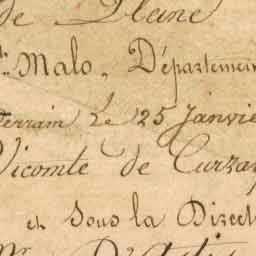 de Plane
St Malo, Départemen
Terrain le 25 Janvie
Vicomte de Curzay
et Sous la Direct
Mr D'A